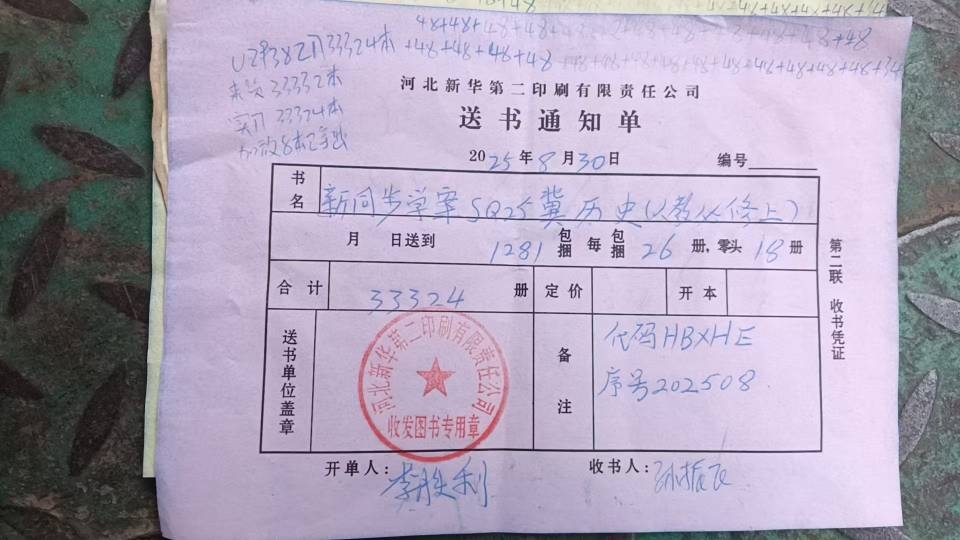 48+48+48+48
33324本
+48+48+48+48
来货33332本
实入33324本
河北新华第二印刷有限责任公司
送书通知单
2025年8月30日
编号
书名
新同步学案SQ25冀历史(人教必修上)
月 日送到 1281 包捆 每 包捆 26 册,零头 18 册
合计 33324 册 定价 开本
送书单位盖章
河北新华第二印刷有限责任公司
收发图书专用章
备注
代码HBXHE
序号202508
第二联 收书凭证
开单人:李胜利
收书人:孙振飞